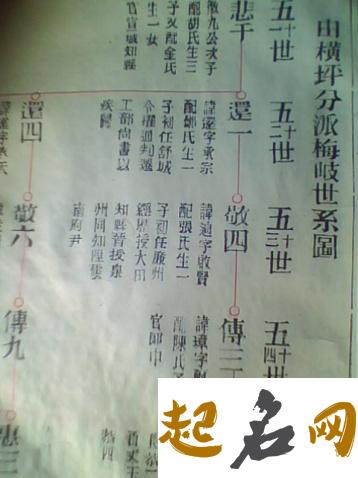 由橫坪分派梅岐世系圖
五十一世
五十二世
五十三世
五十四世
悲千
徵九公次子
配胡氏生三
子又配金氏
生一女
官宣城知縣
還一
諱還字承宗
配鄭氏生一
子初任舒城
令權通判遷
工部尚書以
疾歸
敬四
諱適字敬賢
配張氏生一
子初任廉州
經歷授大田
知縣晉授泉
州同知陞
南府尹
傳二
諱璋字
配陳氏
官郎中
還四
諱還字承
敬六
傳九
惠三
起名网